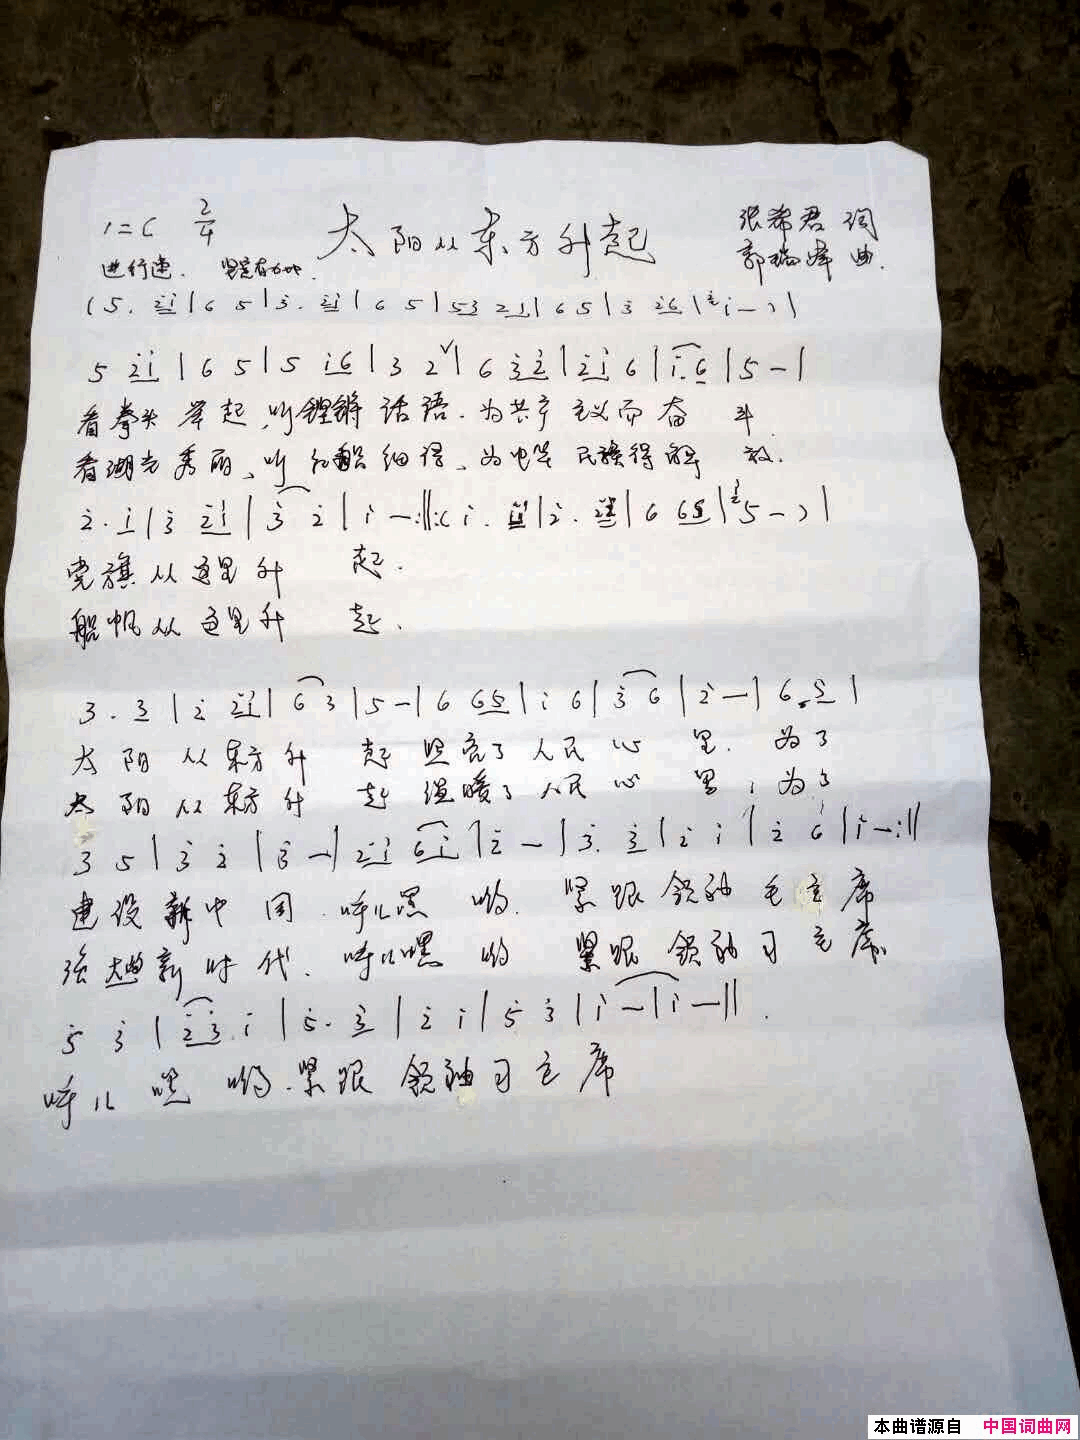 1=C 2/4 太阳从东方升起 张希君 词
进行速. 坚定有力地. 郭瑞峰 曲.
(5. 2̇1̇|6 5|3̇. 2̇1̇|6 5|53 21|65|3 2̇6|1̇-)|
5 2̇1̇|6 5|5 1̇6|3 2ˇ|6 3̇2̇|2̇1̇ 6|1̇.6|5-|
看拳头 举起,听铿锵 话语.为共产主义而奋 斗.
看湖光秀丽、听红船细语、为中华民族得解 放.
2̇.1̇|3̇ 2̇1̇|3̇ 2̇|1̇-:‖:(1̇. |2̇. |6 65|5-)|
党旗从这里升 起.
船帆从这里升 起.
3.3|2̇ 2̇1̇|6 3|5-|6 65|1̇ 6|3̇ 6|2̇-|6.5|
太阳 从东方升 起 照亮了人民 心 里. 为了
太阳从东方升 起 温暖了人民 心 里,为了
3 5|3̇ 2̇|3̇-|2̇1̇ 61̇|2̇-|3̇.3̇|2̇ 1̇|2̇ 6|1̇-:‖
建设新中 国.呼儿嘿 哟. 紧跟领袖毛主席
强大的新时代.呼儿嘿 哟 紧跟领袖习主席.
5̇ 3̇|2̇3̇ 1̇|5̇.3̇|2̇ 1̇|5̇ 3̇|1̇-|1̇-‖.
呼儿 嘿 哟.紧跟 领袖习主席
本曲谱源自 中国词曲网